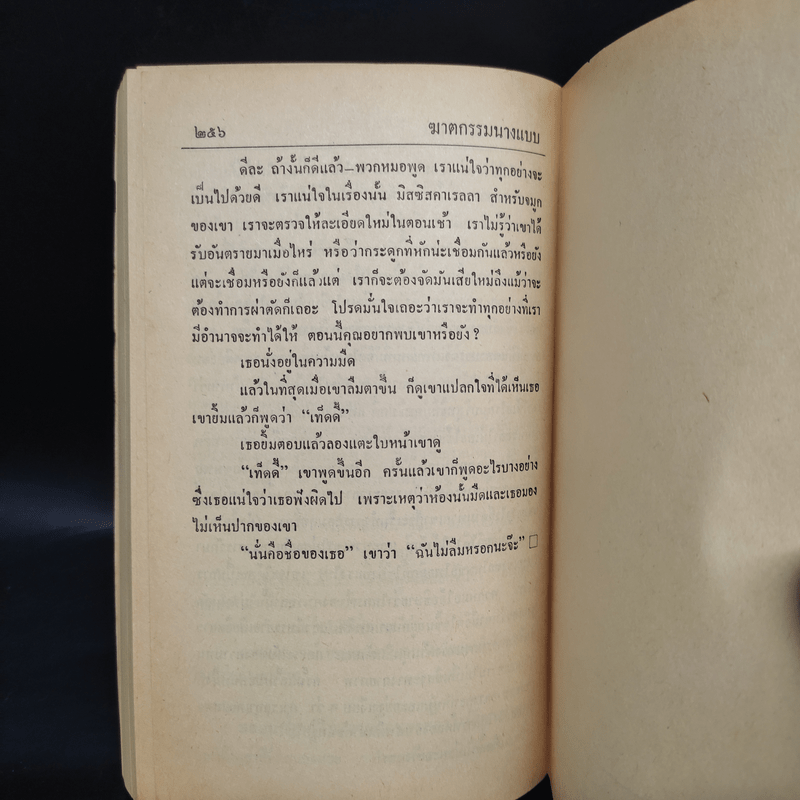 ๒๕๖ ฆาตกรรมนางแบบ
ดีละ ถ้างั้นก็ดีแล้ว—พวกหมอพูด เราแน่ใจว่าทุกอย่างจะ
เป็นไปด้วยดี เราแน่ใจในเรื่องนั้น มิสซิสคาเรลลา สำหรับจมูก
ของเขา เราจะตรวจให้ละเอียดใหม่ในตอนเช้า เราไม่รู้ว่าเขาได้
รับอันตรายมาเมื่อไหร่ หรือว่ากระดูกที่หักน่ะเชื่อมกันแล้วหรือยัง
แต่จะเชื่อมหรือยังก็แล้วแต่ เราก็จะต้องจัดมันเสียใหม่ถึงแม้ว่าจะ
ต้องทำการผ่าตัดก็เถอะ โปรดมั่นใจเถอะว่าเราจะทำทุกอย่างที่เรา
มีอำนาจจะทำได้ให้ ตอนนี้คุณอยากพบเขาหรือยัง ?
เธอนั่งอยู่ในความมืด
แล้วในที่สุดเมื่อเขาลืมตาขึ้น ก็ดูเขาแปลกใจที่ได้เห็นเธอ
เขายิ้มแล้วก็พูดว่า “เท็ดดี้”
เธอยิ้มตอบแล้วลองแตะใบหน้าเขาดู
“เท็ดดี้” เขาพูดขึ้นอีก ครั้นแล้วเขาก็พูดอะไรบางอย่าง
ซึ่งเธอแน่ใจว่าเธอฟังผิดไป เพราะเหตุว่าห้องนั้นมืดและเธอมอง
ไม่เห็นปากของเขา
“นั่นคือชื่อของเธอ” เขาว่า “ฉันไม่ลืมหรอกนะจ๊ะ” □